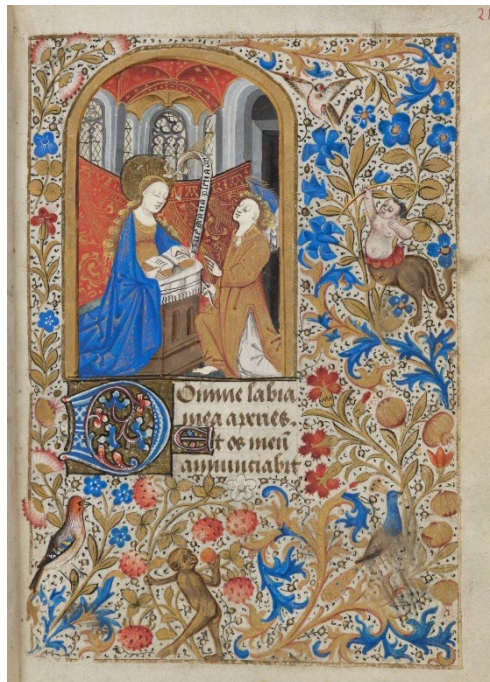 21
Domine labia
mea aperies.
Et os meū
annunciabit